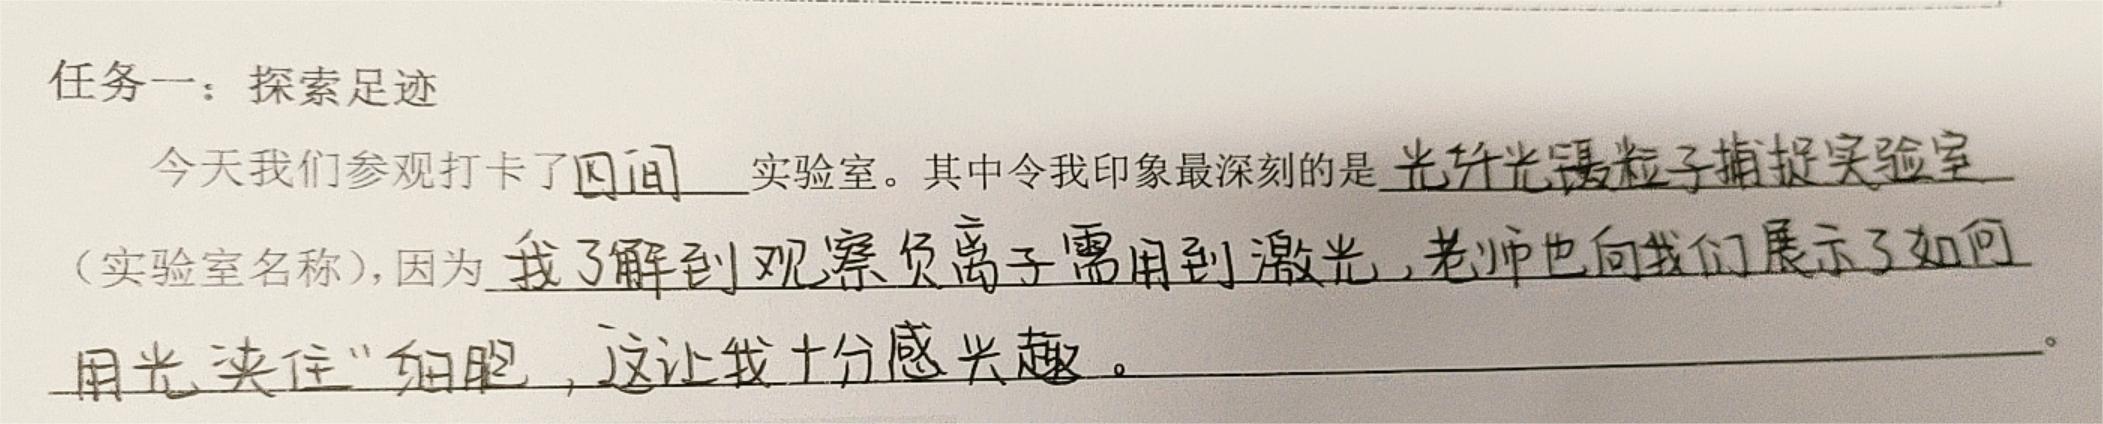 任务一：探索足迹
今天我们参观打卡了四间实验室。其中令我印象最深刻的是光纤光镊粒子捕捉实验室
（实验室名称），因为我了解到观察负离子需用到激光，老师也向我们展示了如何
用光夹住"细胞，这让我十分感兴趣。。